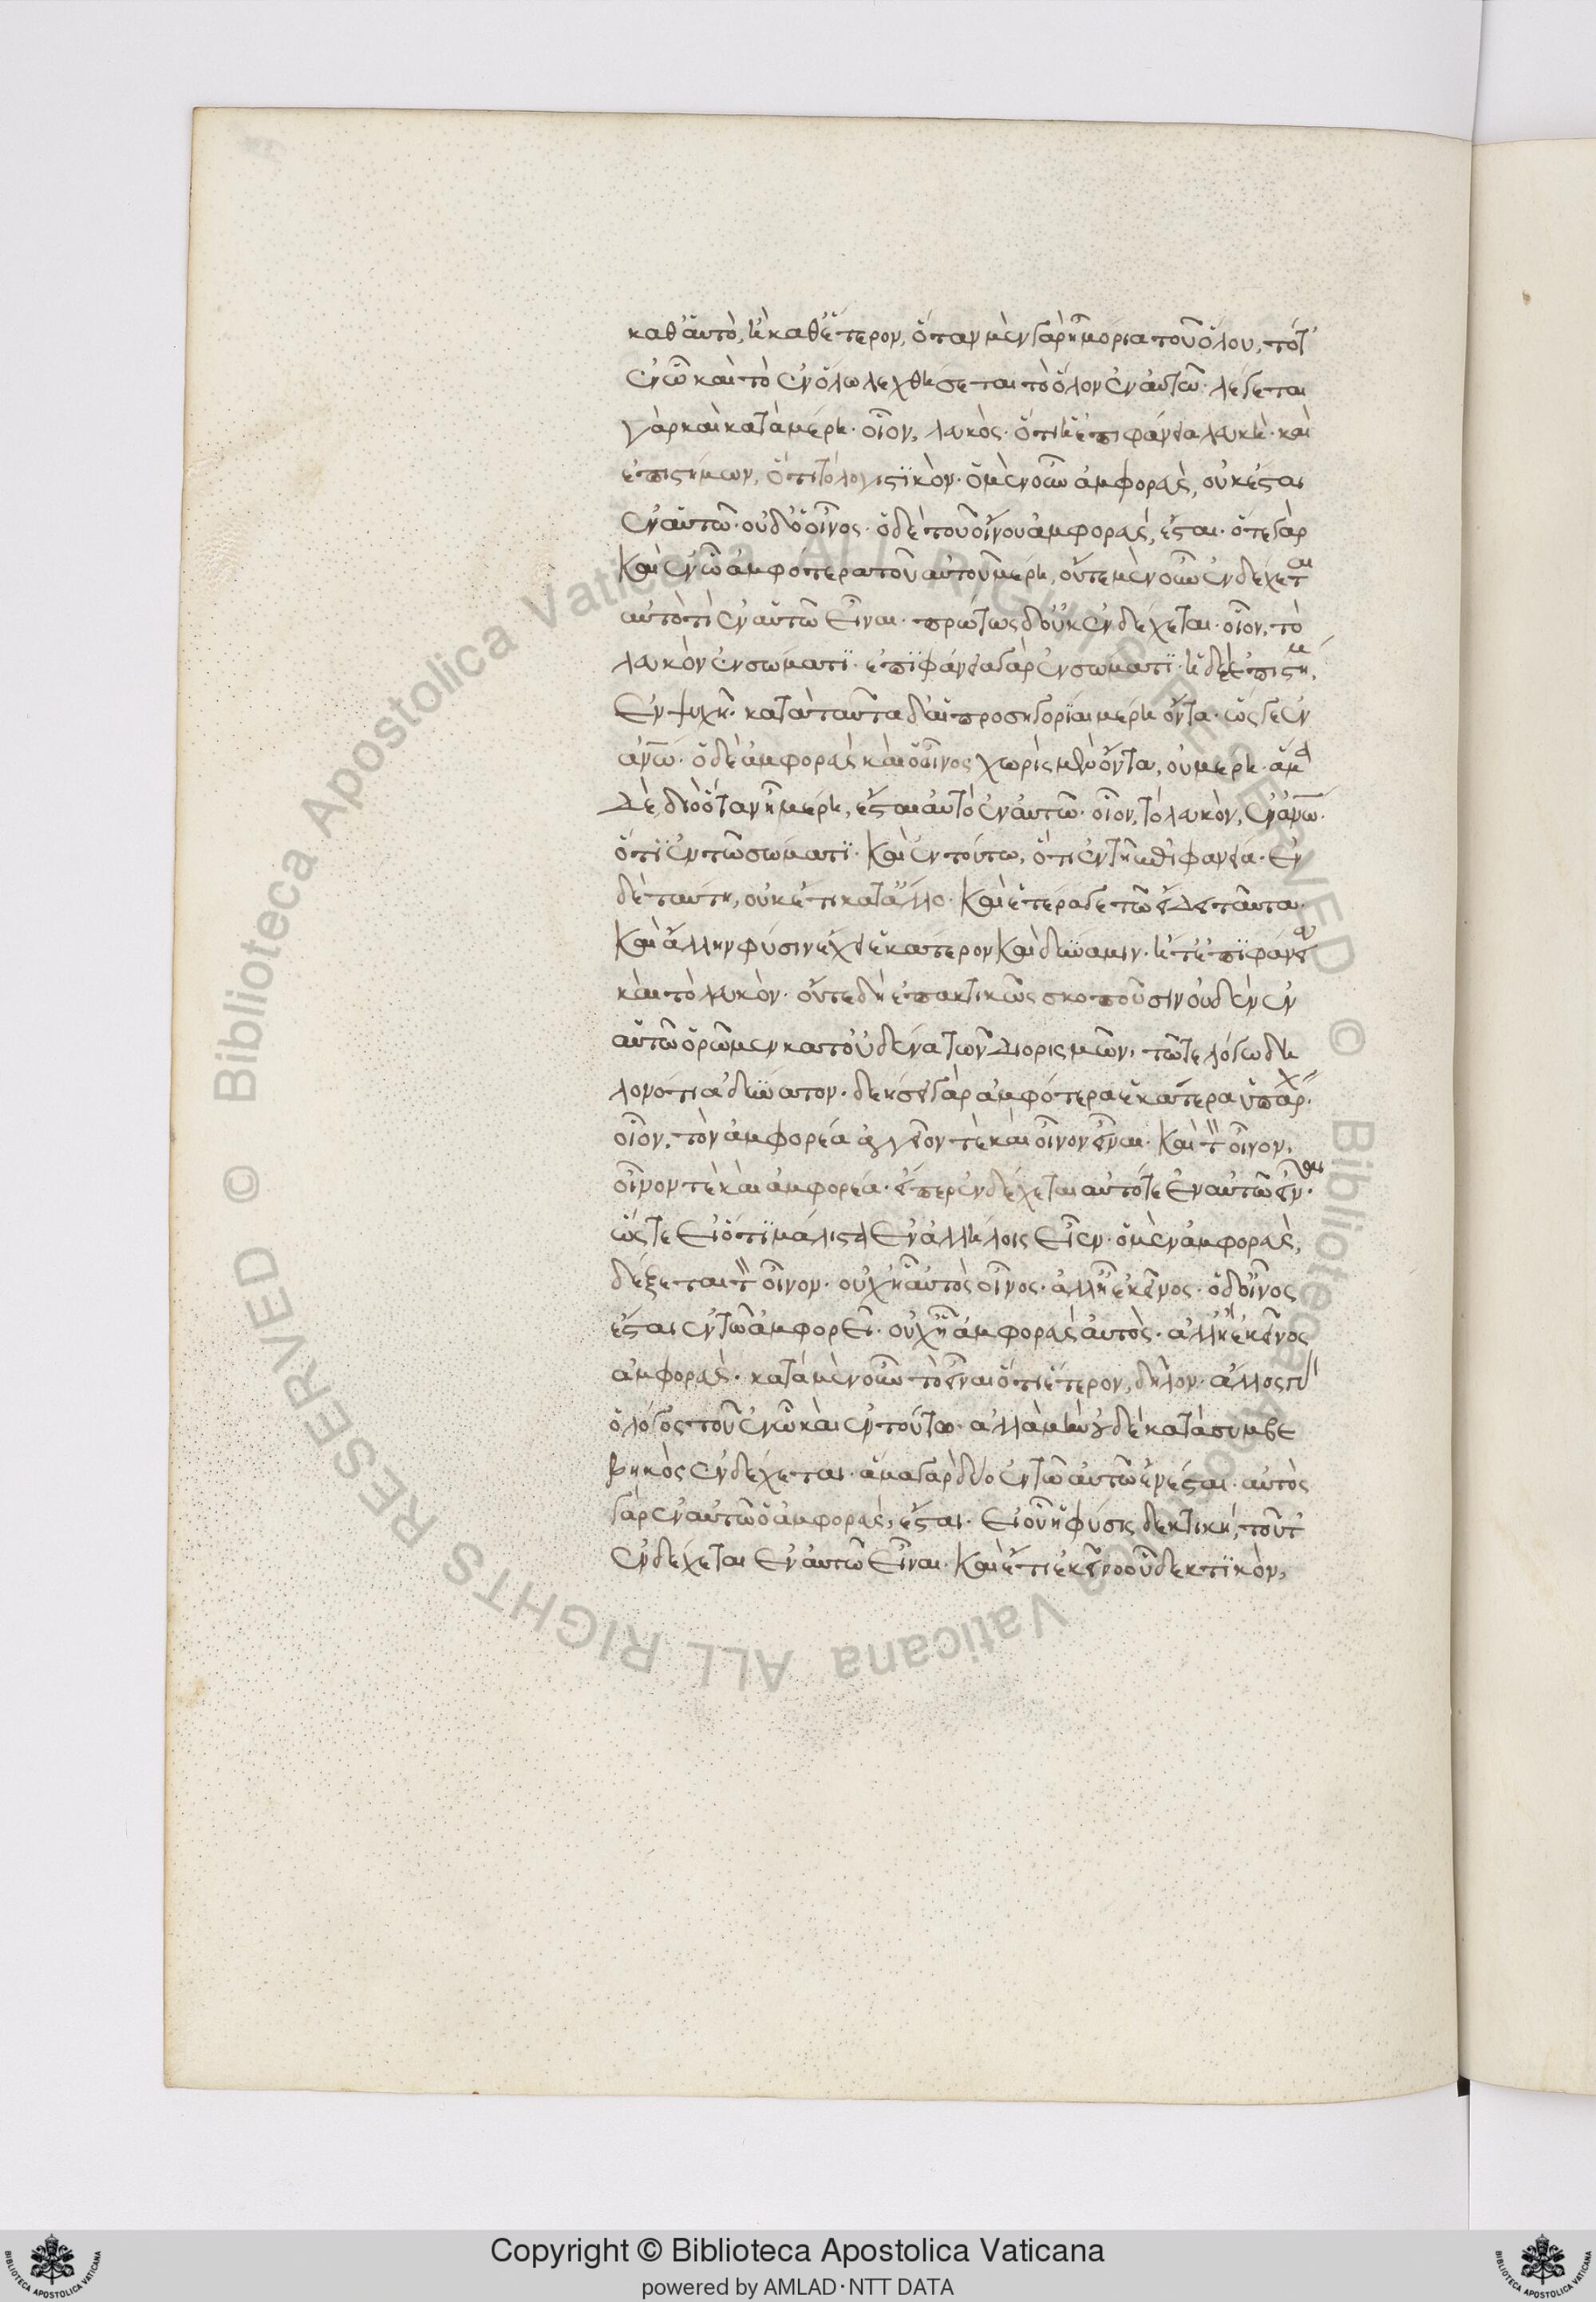 καθ' αὑτὸ, ἢ καθ' ἕτερον, ὅταν μὲν γὰρ ἦ μόρια τοῦ ὅλου, τό τ'
ἐν ὧ καὶ τὸ ἐν ὅλω λεχθήσεται τὸ ὅλον ἐν αὐτῶ· λέγεται
γὰρ καὶ κατὰ μέρη· οἷον, λευκὸς· ὅτι ἡ ἐπιφάνεια λευκὴ· καὶ
ἐπιστήμων, ὅτι τὸ λογιστικὸν· ὁ μὲν οὖν ἀμφορεὺς, οὐκ ἔσται
ἐν αὑτῶ· οὐδ' ὁ οἶνος· ὁ δὲ τοῦ οἴνου ἀμφορεὺς, ἔσται· ὅ τε γὰρ
καὶ ἐν ὧ ἀμφότερα τοῦ αὐτοῦ μέρη, οὕτε μὲν οὖν ἐνδέχεται
αὐτό τι ἐν αὑτῶ εἶναι· πρώτως δ' οὐκ ἐνδέχεται· οἷον, τὸ
λευκὸν ἐν σώματι· ἐπιφάνεια γὰρ ἐν σώματι· ἡ δὲ ἐπιστήμ
ἐν ψυχῆ· κατὰ ταῦτα δ' αἱ προσηγορίαι μέρη ὄντα· ὥς γε ἐν
ἀνω· ὁ δὲ ἀμφορεὺς καὶ ὁ οἶνος χωρὶς μὲν ὄντα, οὐ μέρη· ἅμα
δὲ, διὸ ὅταν ἦ μέρη, ἔσται αὐτὸ ἐν αὑτῶ· οἷον, τὸ λευκὸν, ἐν ἀνω·
ὅτι ἐν τῶ σώματι· καὶ ἐν τούτω, ὅτι ἐν τῆ ἐπιφανεία· ἐν
δὲ ταύτη, οὐκέτι κατ' ἄλλο· καὶ ἕτερά γε τῶ εἴδει ταῦτα·
καὶ ἄλλην φύσιν ἔχει ἑκάτερον καὶ δύναμιν· ἥ τ' ἐπιφάνεια
καὶ τὸ λευκὸν· οὔτε δὴ ἐπακτικῶς σκοποῦσιν οὐδὲν ἐν
αὑτῶ ὁρῶμεν κατ' οὐδένα τῶν διορισμῶν, τῶ τε λόγω δῆ
λον ὅτι ἀδύνατον· δεήσει γὰρ ἀμφότερα ἑκάτερα ὑπάρχ·
οἷον, τὸν ἀμφορέα ἀγγεῖον τὲ καὶ οἶνον εἶναι· καὶ τ οἶνον,
οἶνον τὲ καὶ ἀμφορέα· εἴπερ ἐνδέχεται αὐτό τε ἐν αὑτῶ εἶναι·
ὥστε εἰ ὅτι μάλιστα ἐν ἀλλήλοις εἶεν· ὁ μὲν ἀμφορεὺς,
δέξεται τ οἶνον· οὐχ ἧ αὐτὸς οἶνος· ἀλλ' ἧ ἐκεῖνος· ὁ δ' οἶνος
ἔσται ἐν τῶ ἀμφορεῖ· οὐχ ἧ ἀμφορεὺς αὐτὸς· ἀλλ' ἧ ἐκεῖνος
ἀμφορεὺς· κατὰ μὲν οὖν τὸ εἶναι ὅτι ἕτερον, δῆλον· ἄλλος γὰρ
ὁ λόγος τοῦ ἐν ὧ καὶ ἐν τούτω· ἀλλὰ μὴν οὐδὲ κατὰ συμβε
βηκὸς ἐνδέχεται· ἅμα γὰρ δύο ἐν τῶ αὐτῶ ἐνέσται· αὐτὸς
γὰρ ἐν αὑτῶ ὁ ἀμφορεὺς, ἔσται· εἰ οὗ ἡ φύσις δεκτική, τοῦτ'
ἐνδέχεται ἐν αὑτῶ εἶναι· καὶ ἔτι ἐκεῖνο οὗ δεκτικὸν,